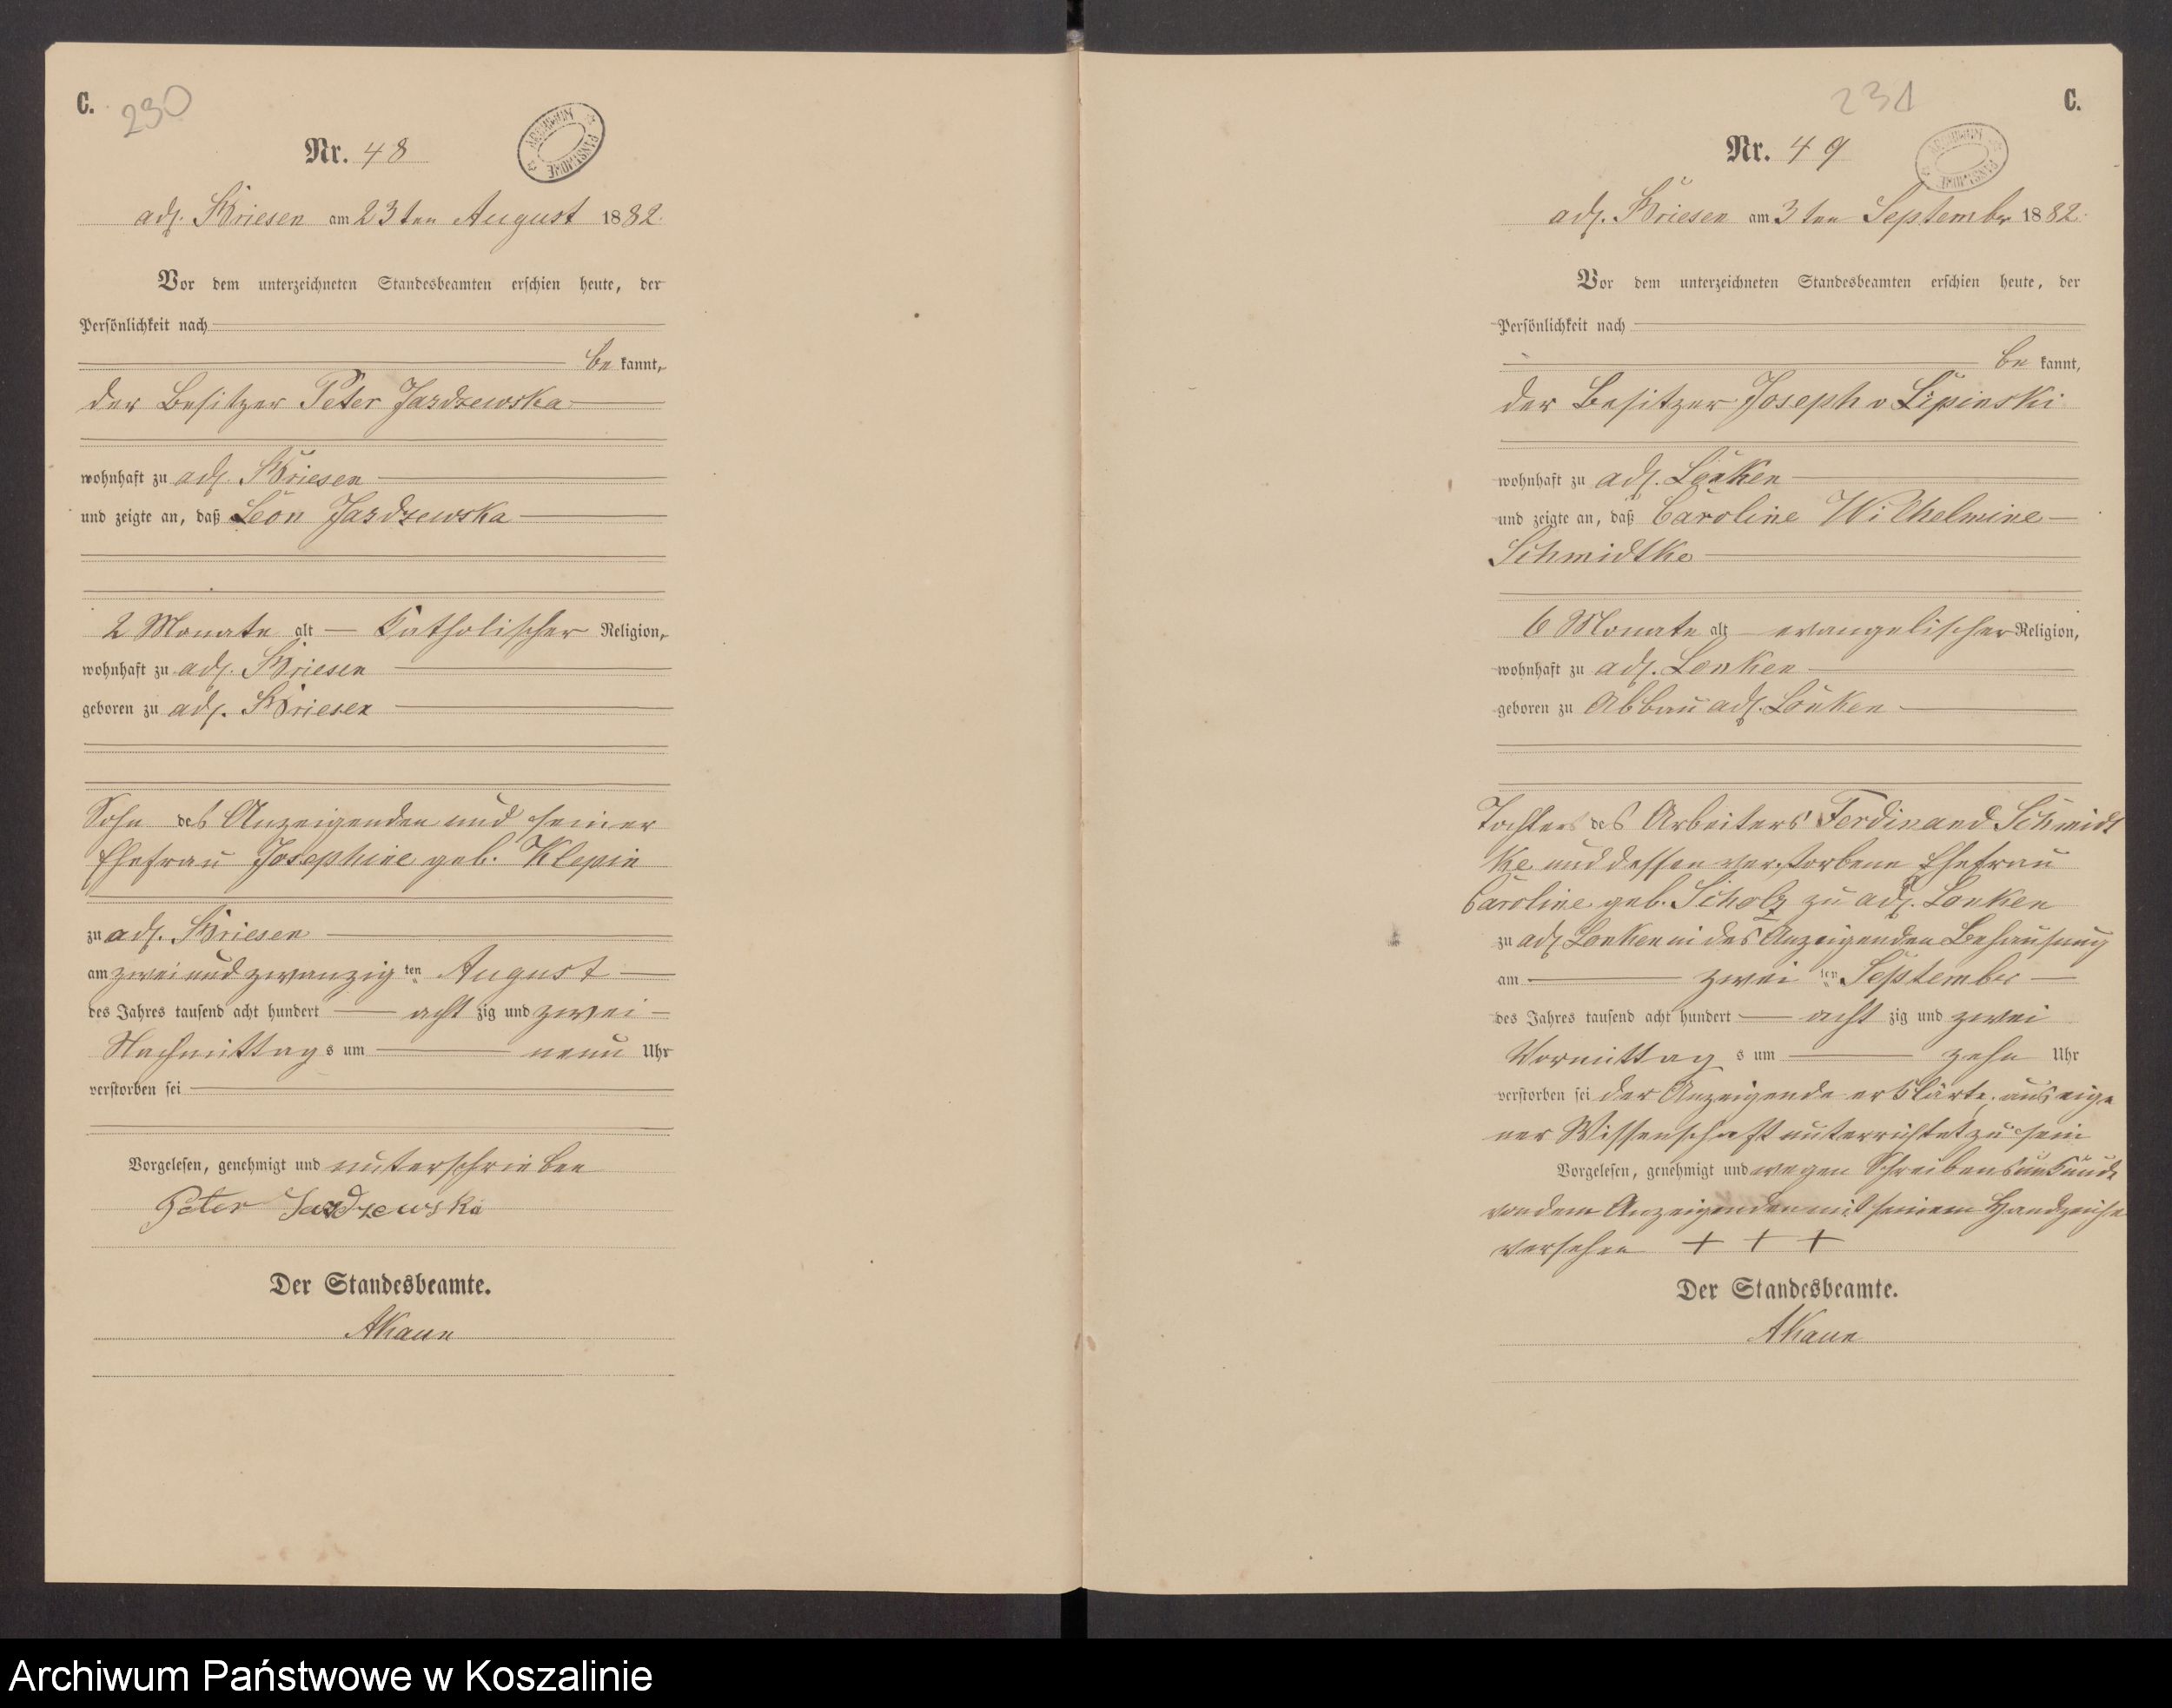 C. 230
Nr. 48
ARCHIWUM PAŃSTWOWE
adl. Briesen am 23ten August 1882.
Vor dem unterzeichneten Standesbeamten erschien heute, der
Persönlichkeit nach
be kannt,
der Besitzer Peter Jazdzewska
wohnhaft zu adl. Briesen
und zeigte an, daß Leon Jazdzewska
2 Monate alt katholischer Religion,
wohnhaft zu adl. Briesen
geboren zu adl. Briesen
Sohn des Anzeigenden und seiner
Ehefrau Josephine geb. Klepin
zu adl. Briesen
am zwei und zwanzig ten August
des Jahres tausend acht hundert acht zig und zwei
Nachmittag s um neun Uhr
verstorben sei
Vorgelesen, genehmigt und unterschrieben
Peter Jazdzewska
Der Standesbeamte.
AKaun
231 C.
Nr. 49
ARCHIWUM PAŃSTWOWE
adl. Briesen am 3ten September 1882.
Vor dem unterzeichneten Standesbeamten erschien heute, der
Persönlichkeit nach
be kannt,
der Besitzer Joseph v Lipinski
wohnhaft zu adl. Lonken
und zeigte an, daß Caroline Wilhelmine
Schmidtke
6 Monate alt evangelischer Religion,
wohnhaft zu adl. Lonken
geboren zu Abbau adl. Lonken
Tochter des Arbeiters Ferdinand Schmidt
ke und dessen verstorbene Ehefrau
Caroline geb. Scholz zu adl. Lonken
zu adl Lonken in des Anzeigenden Behausung
am zwei ten September
des Jahres tausend acht hundert acht zig und zwei
Vormittag s um zehn Uhr
verstorben sei der Anzeigende erklärte, aus eige
ner Wissenschaft unterrichtet zu sein
Vorgelesen, genehmigt und wegen Schreibensunkunde
von dem Anzeigenden mit seinem Handzeichen
versehen + + +
Der Standesbeamte.
AKaun
Archiwum Państwowe w Koszalinie